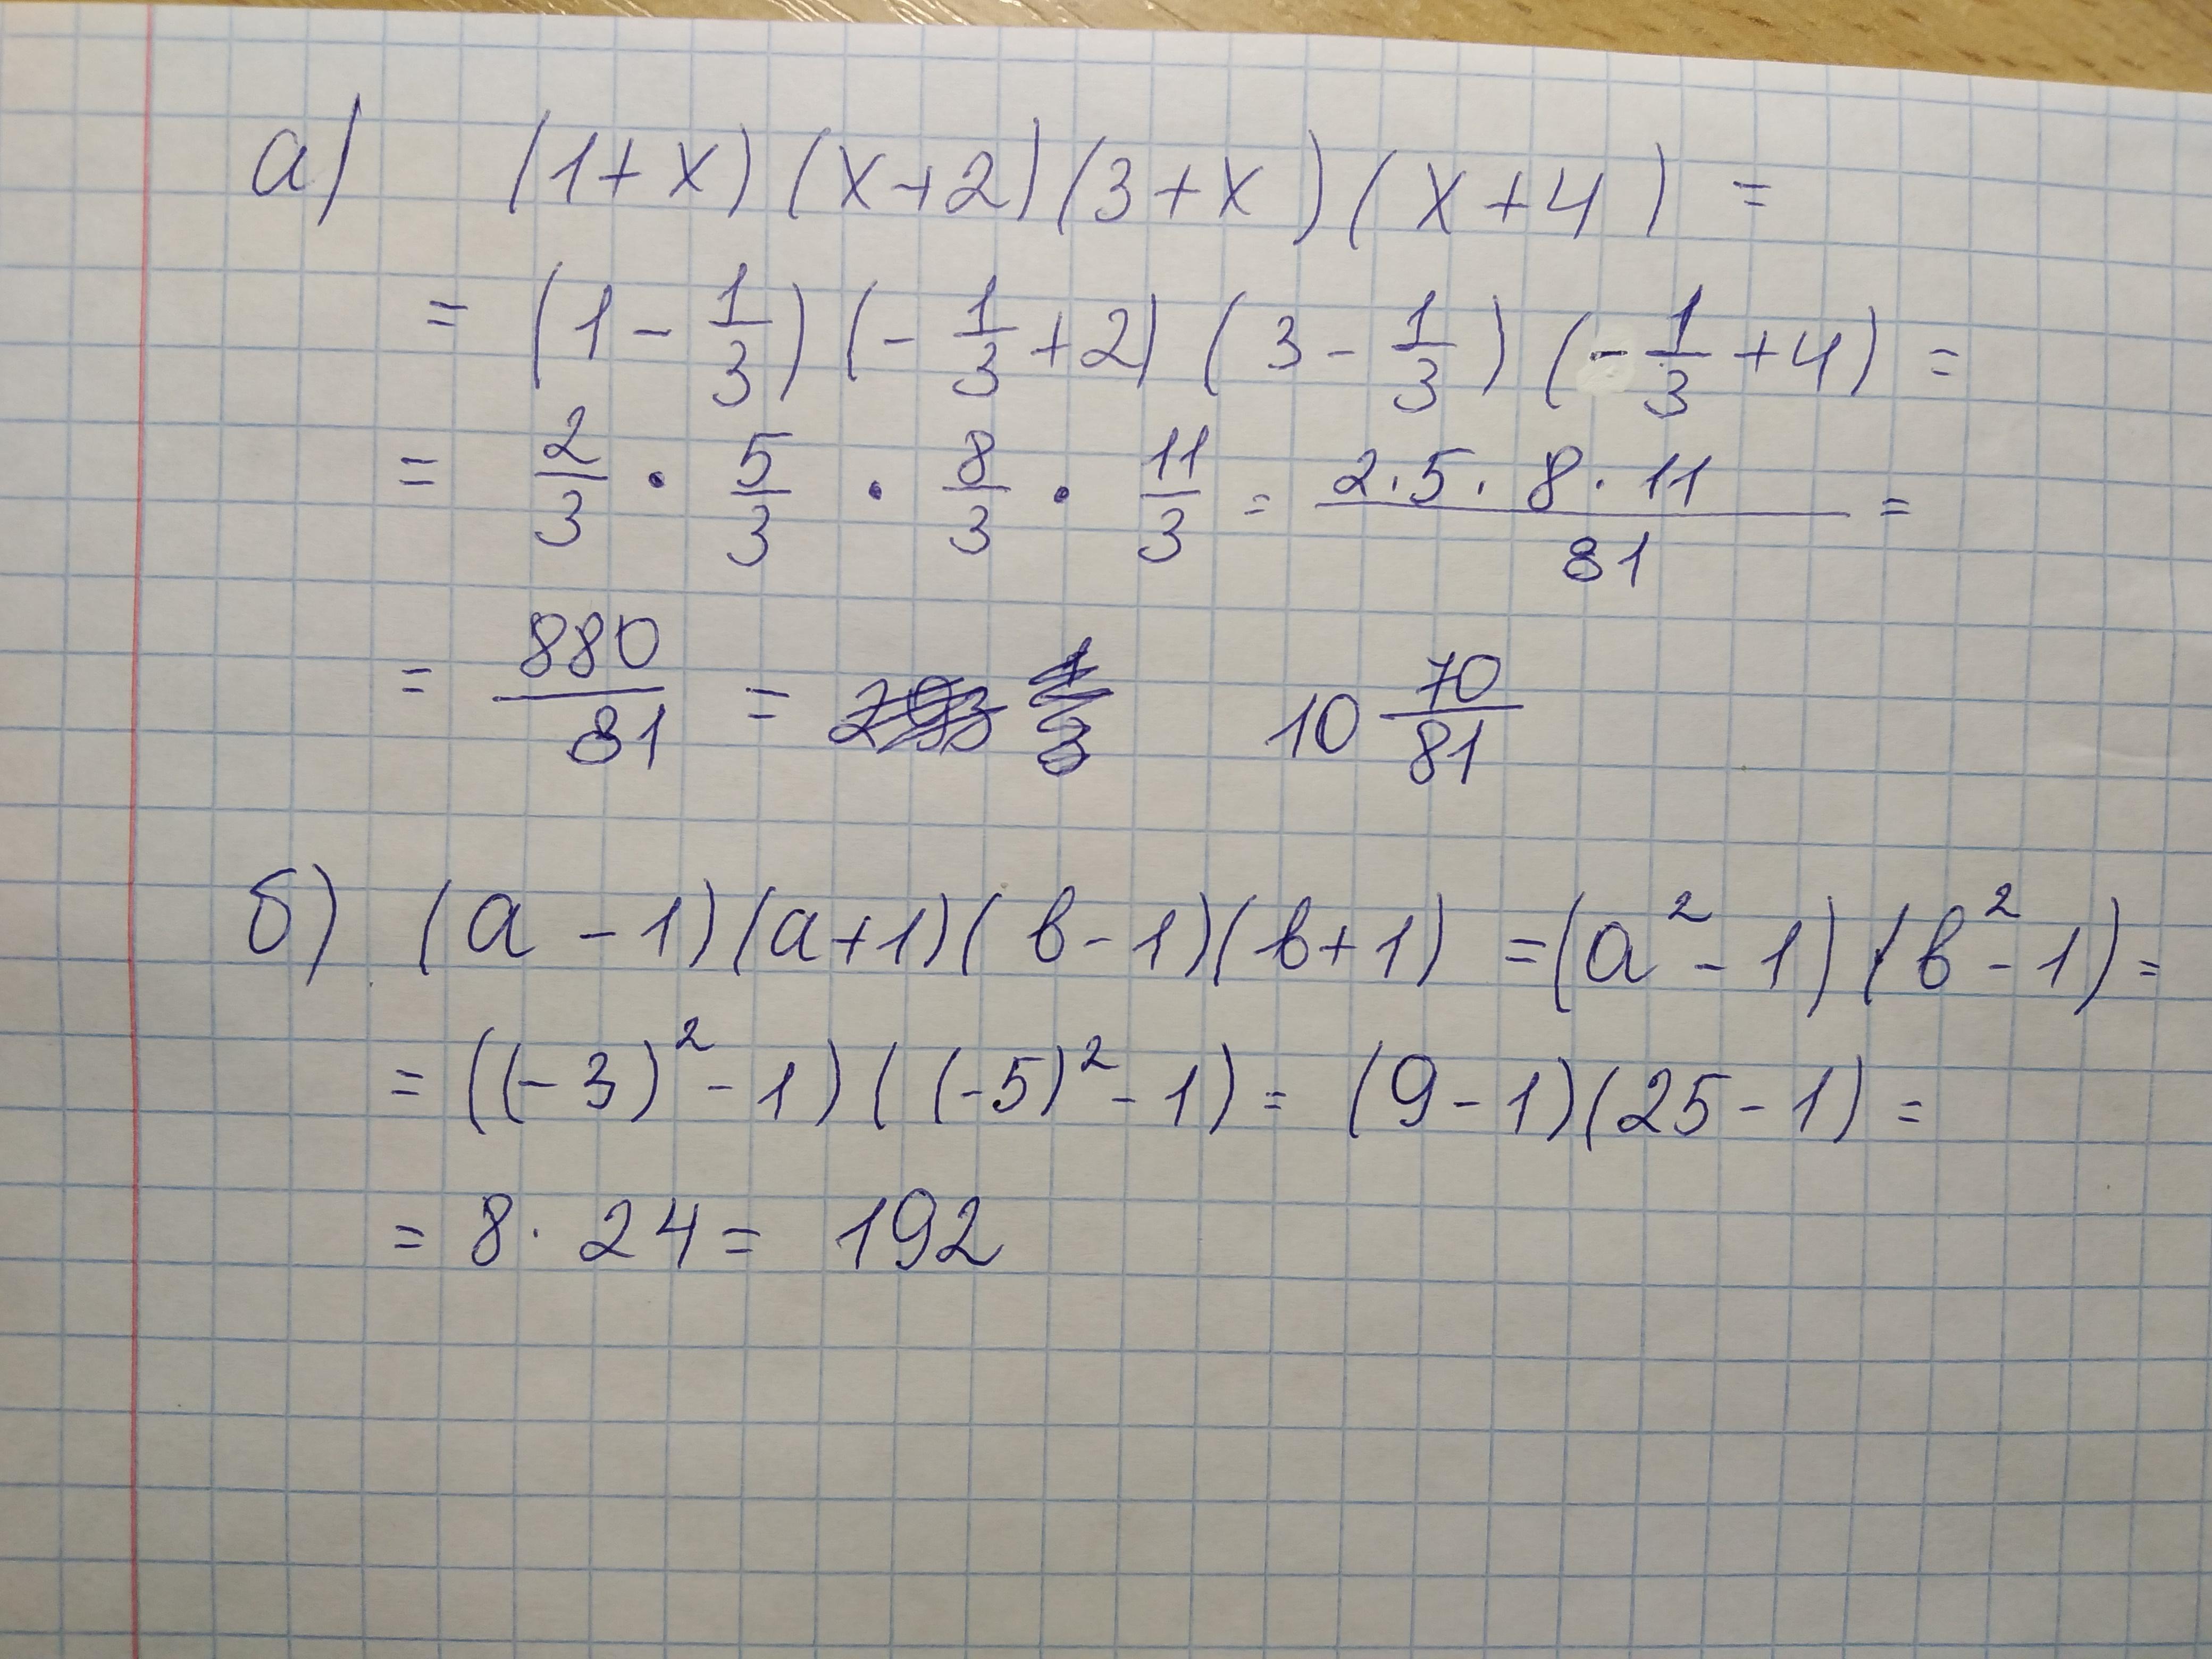 а) (1+x)(x+2)(3+x)(x+4) =
= (1 - 1/3)(- 1/3 + 2)(3 - 1/3)(- 1/3 + 4) =
= 2/3 · 5/3 · 8/3 · 11/3 = 2·5·8·11/81 =
= 880/81 = 10 70/81
б) (a - 1)(a+1)(b - 1)(b+1) = (a² - 1)(b² - 1) =
= ((-3)² - 1)((-5)² - 1) = (9 - 1)(25 - 1) =
= 8 · 24 = 192